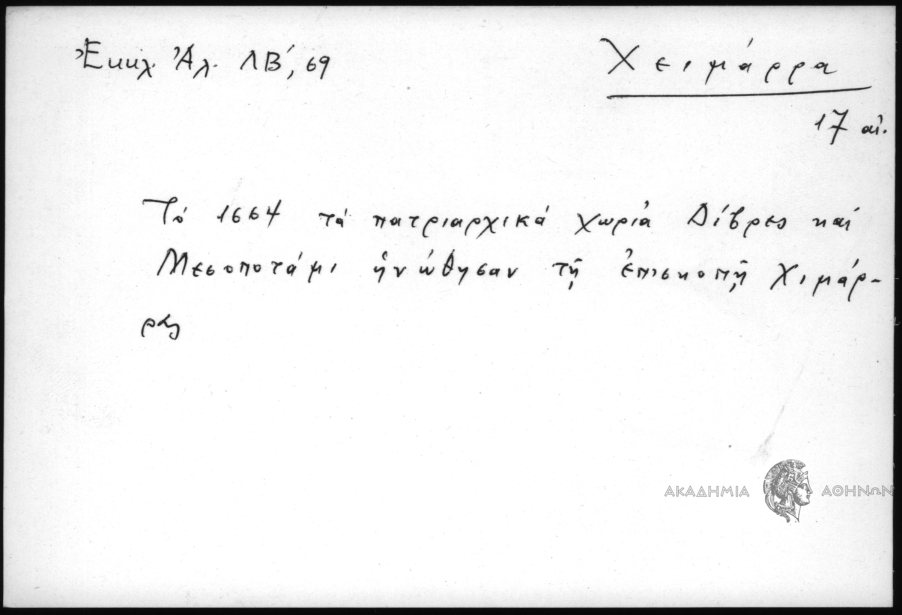 Ἐκκλ. Ἀλ. ΛΒ΄, 69
Χειμάρρα
17 αἰ.
Τό 1664 τά πατριαρχικά χωριά Δίβρες καί
Μεσοποτάμι ἡνώθησαν τῇ ἐπισκοπῇ Χιμάρ-
ρας
ΑΚΑΔΗΜΙΑ ΑΘΗΝΩΝ